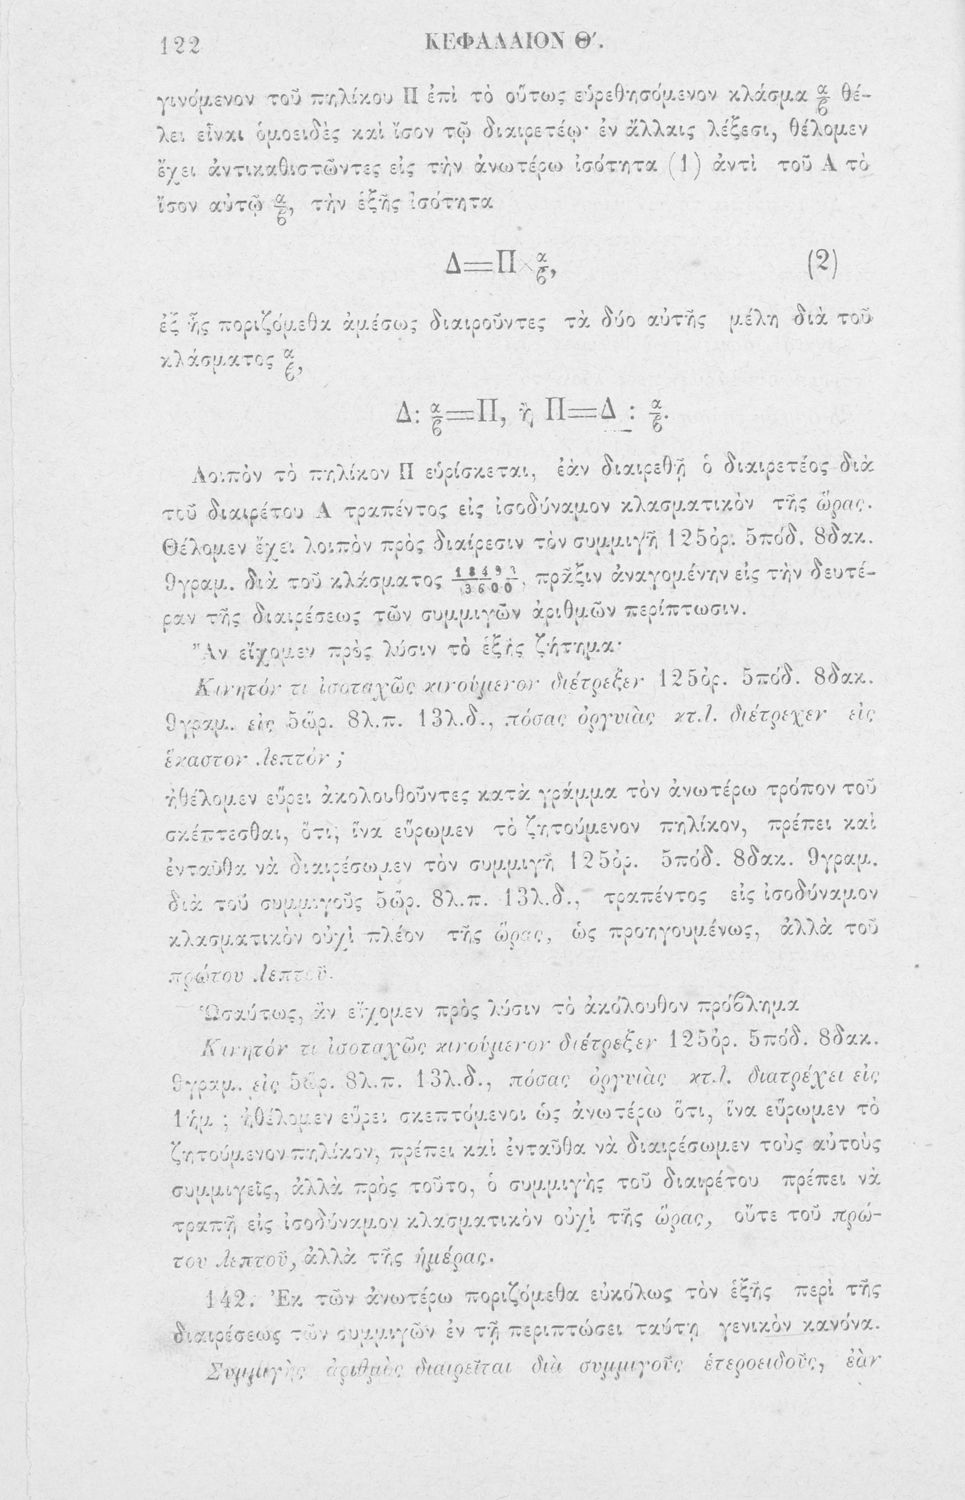 122 ΚΕΦΑΛΑΙΟΝ Θʹ.
γινόμενον τοῦ πηλίκου Π ἐπὶ τὸ οὕτως εὑρεθησόμενον κλάσμα α/β θέ-
λει εἶναι ὁμοειδὲς καὶ ἴσον τῷ διαιρετέῳ· ἐν ἄλλαις λέξεσι, θέλομεν
ἔχει ἀντικαθιστῶντες εἰς τὴν ἀνωτέρω ἰσότητα (1) ἀντὶ τοῦ Α τὸ
ἴσον αὐτῷ α/β, τὴν ἑξῆς ἰσότητα
Δ=Π×α/β, (2)
ἐξ ἧς ποριζόμεθα ἀμέσως διαιροῦντες τὰ δύο αὐτῆς μέλη διὰ τοῦ
κλάσματος α/β,
Δ: α/β=Π, ἢ Π=Δ : α/β.
Λοιπὸν τὸ πηλίκον Π εὑρίσκεται, ἐὰν διαιρεθῇ ὁ διαιρετέος διὰ
τοῦ διαιρέτου Α τραπέντος εἰς ἰσοδύναμον κλασματικὸν τῆς ὥρας.
Θέλομεν ἔχει λοιπὸν πρὸς διαίρεσιν τὸν συμμιγῆ 125ὀρ. 5πόδ. 8δακ.
9γραμ. διὰ τοῦ κλάσματος 18493/3600, πρᾶξιν ἀναγομένην εἰς τὴν δευτέ-
ραν τῆς διαιρέσεως τῶν συμμιγῶν ἀριθμῶν περίπτωσιν.
Ἂν εἴχομεν πρὸς λύσιν τὸ ἑξῆς ζήτημα·
Κινητόν τι ἰσοταχῶς κινούμενον διέτρεξεν 125ὀρ. 5πόδ. 8δακ.
9γραμ. εἰς 5ὥρ. 8λ.π. 13λ.δ., πόσας ὀργυιὰς κτ.λ. διέτρεχεν εἰς
ἕκαστον λεπτόν ;
ἠθέλομεν εὕρει ἀκολουθοῦντες κατὰ γράμμα τὸν ἀνωτέρω τρόπον τοῦ
σκέπτεσθαι, ὅτι, ἵνα εὕρωμεν τὸ ζητούμενον πηλίκον, πρέπει καὶ
ἐνταῦθα νὰ διαιρέσωμεν τὸν συμμιγῆ 125ὀρ. 5πόδ. 8δακ. 9γραμ.
διὰ τοῦ συμμιγοῦς 5ὥρ. 8λ.π. 13λ.δ., τραπέντος εἰς ἰσοδύναμον
κλασματικὸν οὐχὶ πλέον τῆς ὥρας, ὡς προηγουμένως, ἀλλὰ τοῦ
πρώτου λεπτοῦ.
Ὡσαύτως, ἂν εἴχομεν πρὸς λύσιν τὸ ἀκόλουθον πρόβλημα
Κινητόν τι ἰσοταχῶς κινούμενον διέτρεξεν 125ὀρ. 5πόδ. 8δακ.
9γραμ. εἰς 5ὥρ. 8λ.π. 13λ.δ., πόσας ὀργυιὰς κτ.λ. διατρέχει εἰς
1ἡμ ; ἠθέλομεν εὕρει σκεπτόμενοι ὡς ἀνωτέρω ὅτι, ἵνα εὕρωμεν τὸ
ζητούμενον πηλίκον, πρέπει καὶ ἐνταῦθα νὰ διαιρέσωμεν τοὺς αὐτοὺς
συμμιγεῖς, ἀλλὰ πρὸς τοῦτο, ὁ συμμιγὴς τοῦ διαιρέτου πρέπει νὰ
τραπῇ εἰς ἰσοδύναμον κλασματικὸν οὐχὶ τῆς ὥρας, οὔτε τοῦ πρώ-
του λεπτοῦ, ἀλλὰ τῆς ἡμέρας.
142. Ἐκ τῶν ἀνωτέρω ποριζόμεθα εὐκόλως τὸν ἑξῆς περὶ τῆς
διαιρέσεως τῶν συμμιγῶν ἐν τῇ περιπτώσει ταύτῃ γενικὸν κανόνα.
Συμμιγὴς ἀριθμὸς διαιρεῖται διὰ συμμιγοῦς ἑτεροειδοῦς, ἐὰν